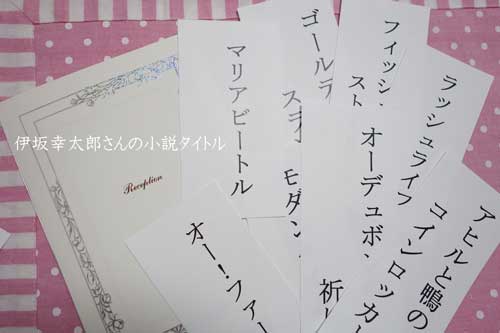 伊坂幸太郎さんの小説タイトル
Reception
マリアビートル
ゴールデ
スラ
モダン
フィッシュ
スト
ラッシュライフ
オーデュボン
祈り
アヒルと鴨の
コインロッカー
オー!ファー